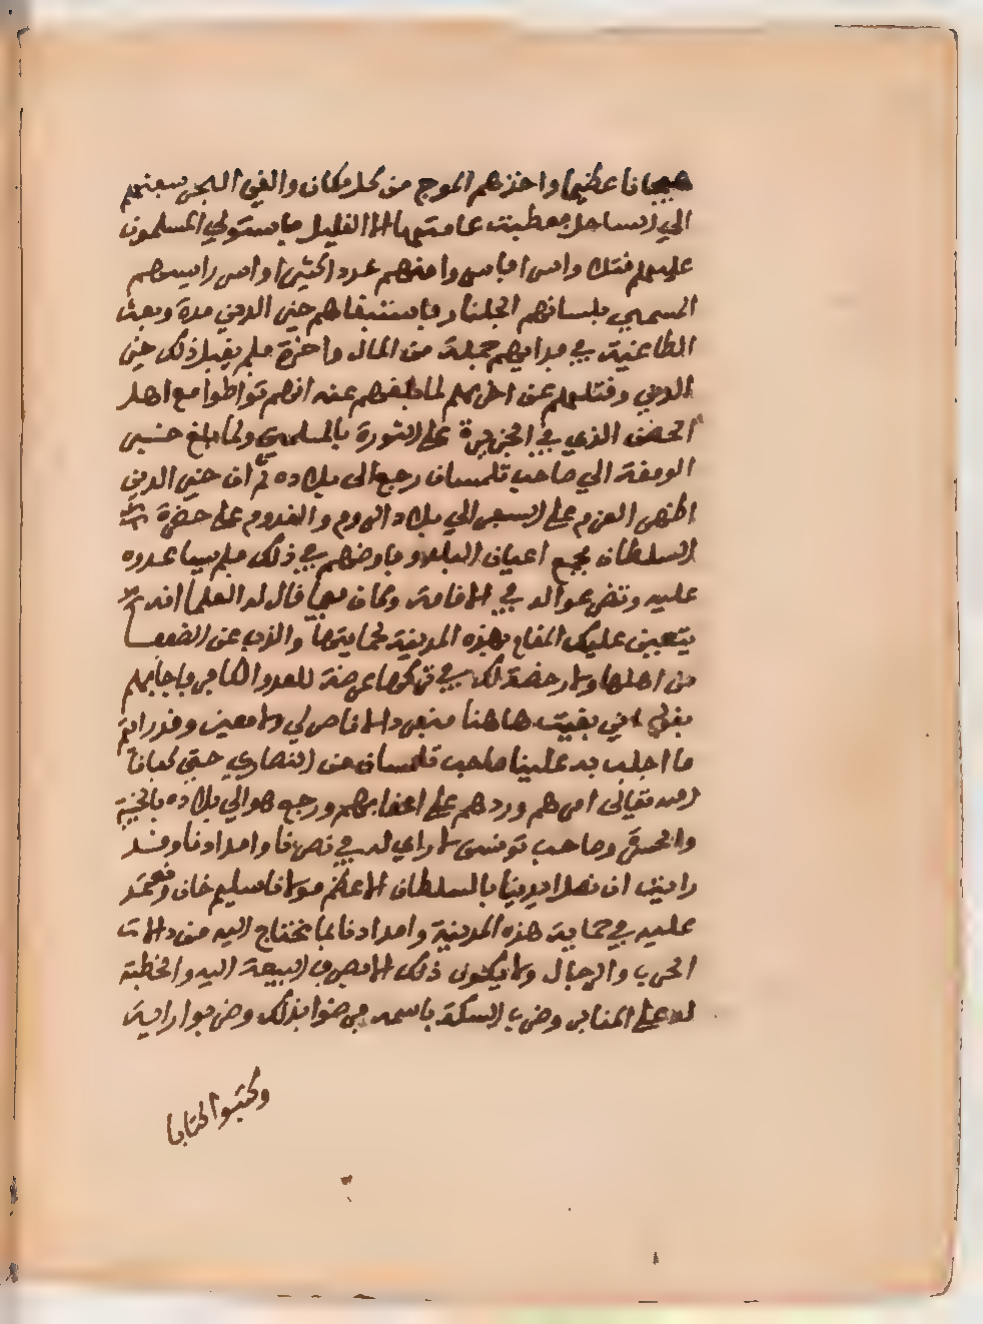 هيجانا عظيما واخذهم الموج من كل مكان والقى البحر سفنهم
الي الساحل فعطبت عامتها الا القليل فاستولي المسلمون
عليهم قتلا واسرا فاسر وامنهم عددا كثيرا واسر راييسهم
المسمي بلسانهم فاستبقاهم خير الدين مدة وبعث
الطاغية في فدايهم جملة من المال واخرة فلم يقبل ذلك خير
الدين وقتلهم عن اخرهم لما بلغهم عنه انهم تواطوا مع اهل
الحصن الذي في الجزيرة على الثورة بالمسلمين ولما بلغ خبر
الوقعة الي صاحب تلمسان رجع الى بلاده ثم ان خير الدين
اظهر العزم على السفر الي بلاد الروم والقدوم على حضرة
السلطان فجمع اعيان البلاد وفاوضهم في ذلك فلم يساعدوه
عليه وتضرعوا له في الاقامة وكان فيما قال له العلما انه
يتعين عليك المقام بهذه المدينة لحمايتها والذب عن الضعفا
من اهلها ولا رخصة لك في تركها عرضة للعدو الكافر فاجابهم
بقوله اني بقيت هاهنا منفردا لا ناصر لي ولا معين وقد رايتم
ما اجلب به علينا صاحب تلمسان من النصاري حتي كفانا
الله تعالى امرهم وردهم على اعقابهم ورجع هو الي بلاده بالخيبة
والحسرة وصاحب تونس لا راي له في نصرنا وامدادنا وقد
رايت ان نصل ايدينا بالسلطان الاعظم مولانا سليم خان ونعتمد
عليه في حماية هذه المدينة وامدادنا بما نحتاج اليه من دالات
الحرب والرجال ولا يكون ذلك الا بصرف البيعة اليه والخطبة
له على المنابر وضرب السكة باسمه فرضوا بذلك وضربوا راية
وكتبوا كتابا